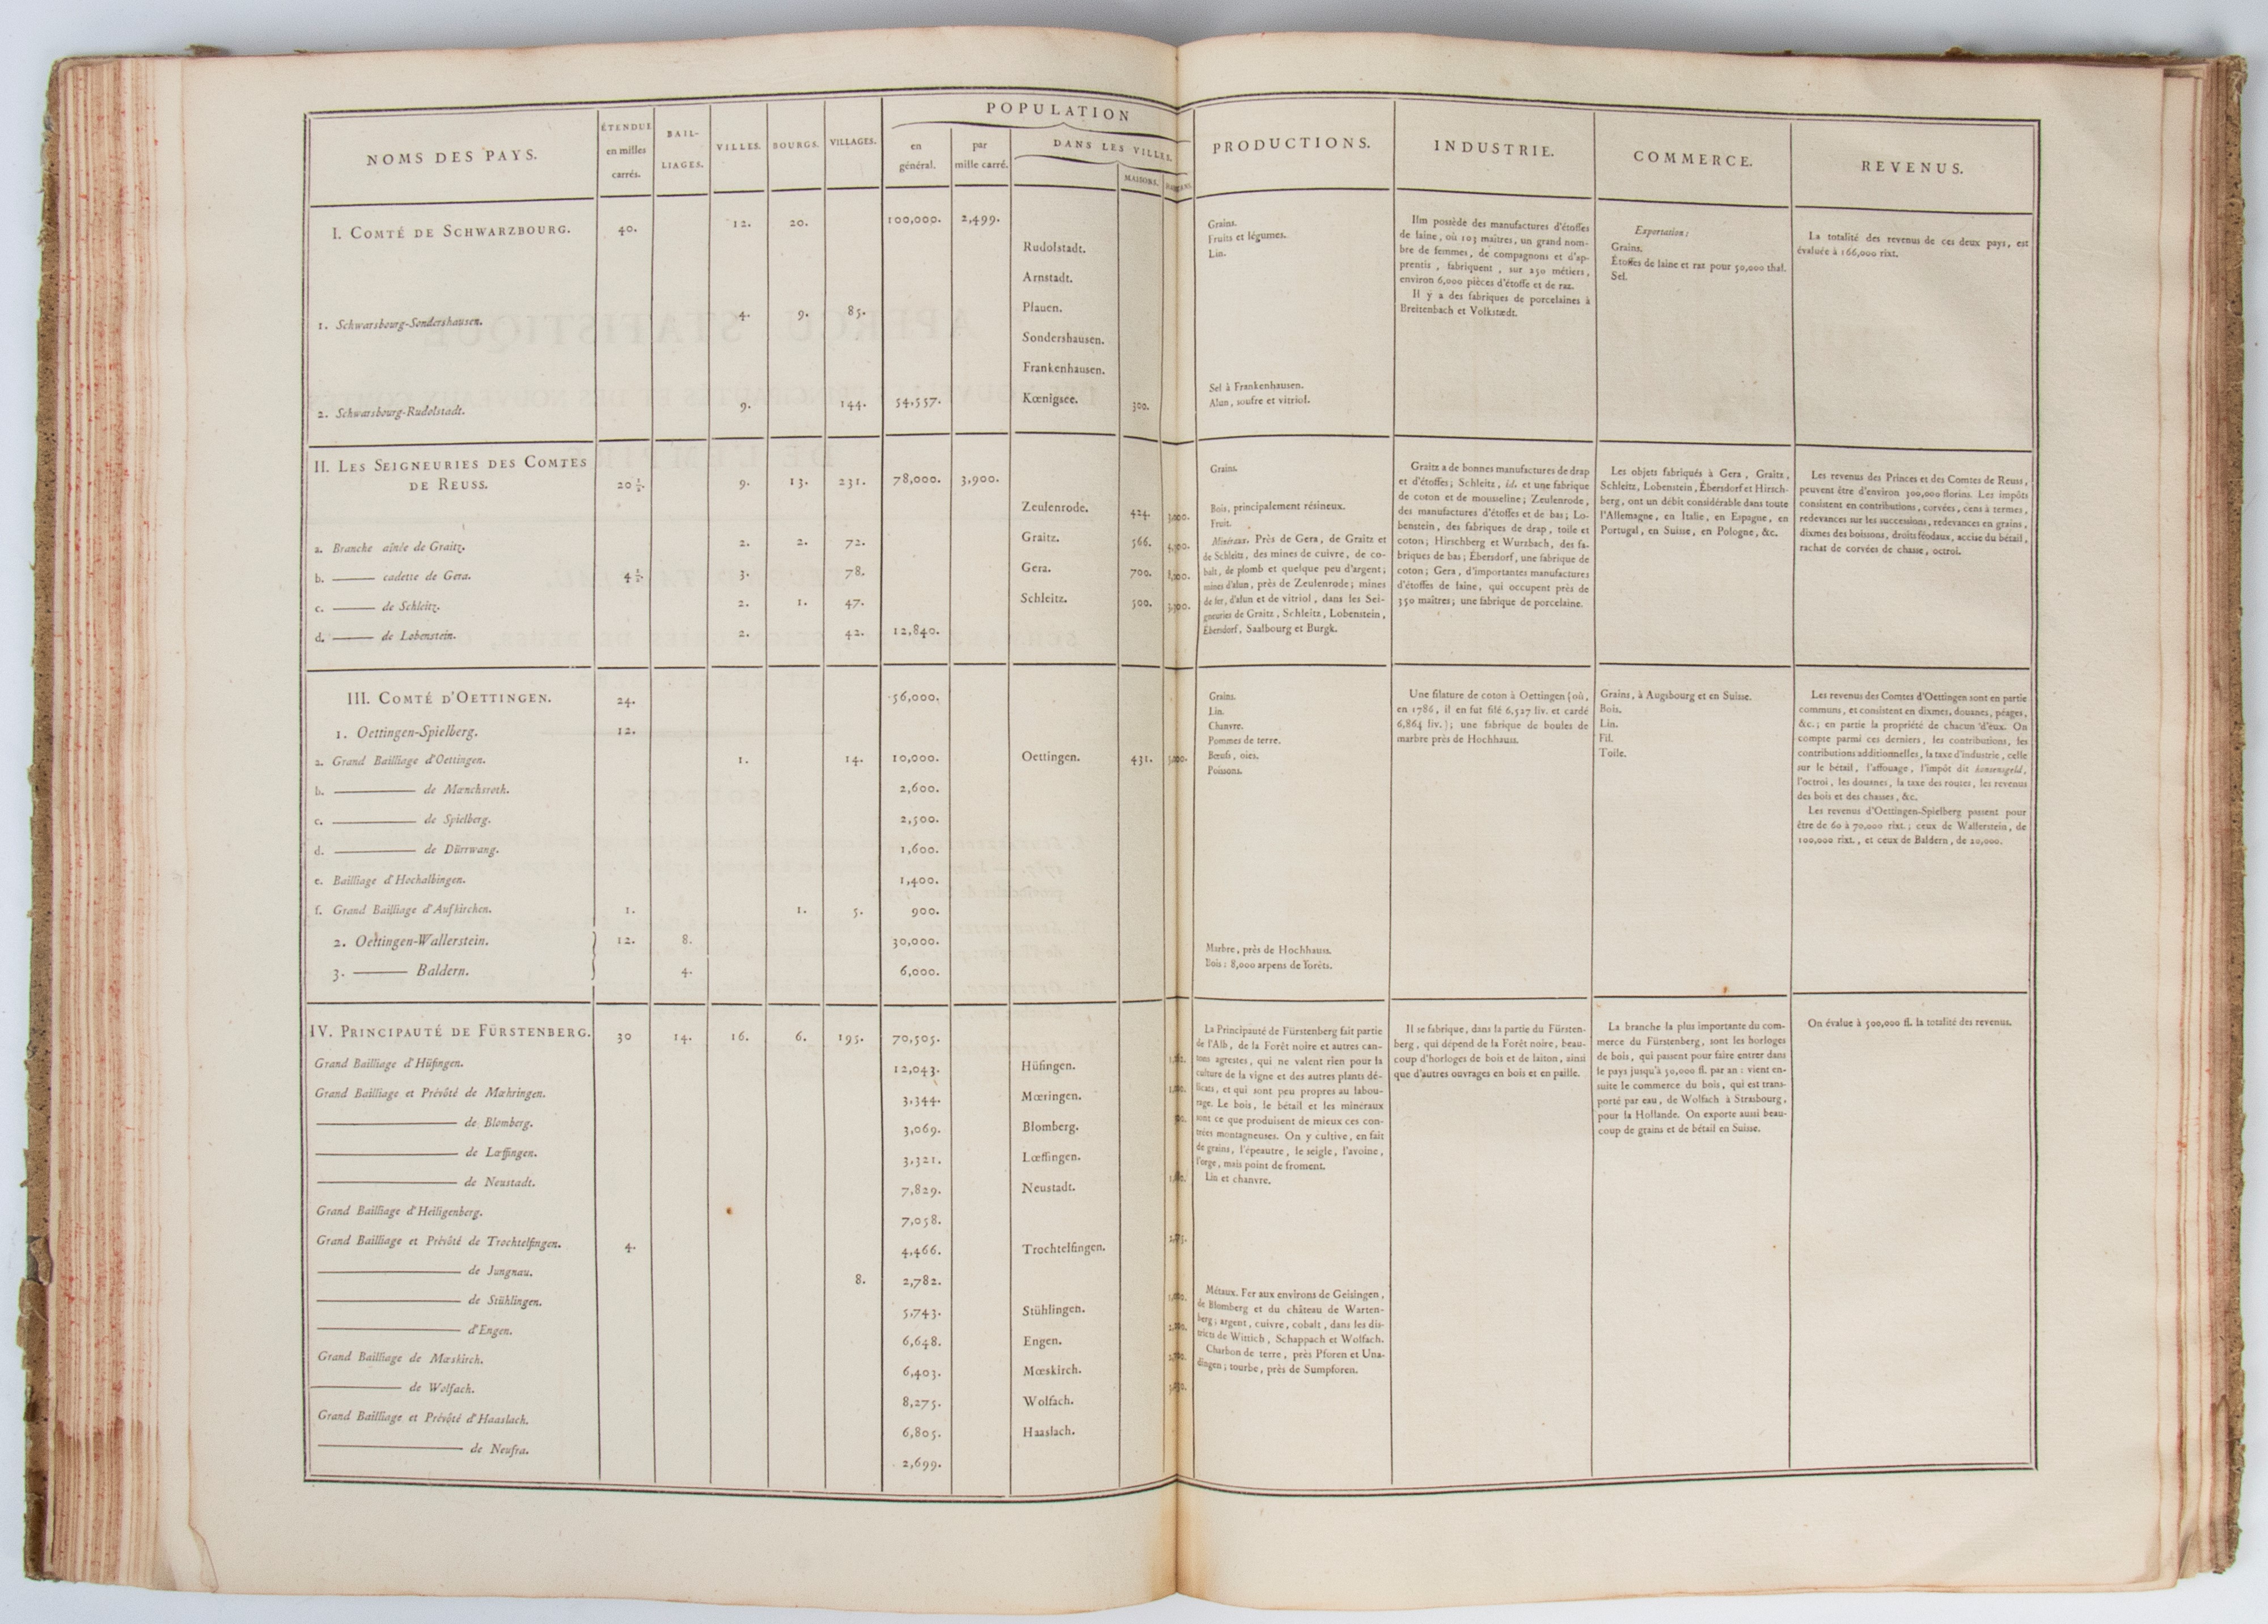 POPULATION
NOMS DES PAYS.
ÉTENDUE
en milles
carrés.
BAIL-
LIAGES.
VILLES.
BOURGS.
VILLAGES.
en
général.
par
mille carré.
DANS LES VILLES.
MAISONS.
PRODUCTIONS.
INDUSTRIE.
COMMERCE.
REVENUS.
I. COMTÉ DE SCHWARZBOURG. 40. 12. 20. 100,000. 2,499.
Rudolstadt.
Arnstadt.
1. Schwarsbourg-Sondershausen. 4. 9. 85. Plauen.
Sondershausen.
Frankenhausen.
2. Schwarsbourg-Rudolstadt. 9. 144. 54,557. Kœnigsee. 300.
Grains.
Fruits et légumes.
Lin.
Sel à Frankenhausen.
Alun, soufre et vitriol.
Ilm possède des manufactures d'étoffes
de laine, où 103 maîtres, un grand nom-
bre de femmes, de compagnons et d'ap-
prentis, fabriquent, sur 250 métiers,
environ 6,000 pièces d'étoffe et de raz.
Il y a des fabriques de porcelaines à
Breitenbach et Volkstædt.
Exportation:
Grains.
Étoffes de laine et raz pour 50,000 thal.
Sel.
La totalité des revenus de ces deux pays, est
évaluée à 166,000 rixt.
II. LES SEIGNEURIES DES COMTES
DE REUSS. 20 1/2. 9. 13. 231. 78,000. 3,900.
Zeulenrode. 424.
a. Branche aînée de Graitz. 2. 2. 72. Graitz. 566.
b. —— cadette de Gera. 4 1/2. 3. 78. Gera. 700.
c. —— de Schleitz. 2. 1. 47. Schleitz. 500.
d. —— de Lobenstein. 2. 42. 12,840.
Grains.
Bois, principalement résineux.
Fruit.
Minéraux. Près de Gera, de Graitz et
de Schleitz, des mines de cuivre, de co-
balt, de plomb et quelque peu d'argent;
mines d'alun, près de Zeulenrode; mines
de fer, d'alun et de vitriol, dans les Sei-
gneuries de Graitz, Schleitz, Lobenstein,
Ébersdorf, Saalbourg et Burgk.
Graitz a de bonnes manufactures de drap
et d'étoffes; Schleitz, id. et une fabrique
de coton et de mousseline; Zeulenrode,
des manufactures d'étoffes et de bas; Lo-
benstein, des fabriques de drap, toile et
coton; Hirschberg et Wurzbach, des fa-
briques de bas; Ébersdorf, une fabrique de
coton; Gera, d'importantes manufactures
d'étoffes de laine, qui occupent près de
350 maîtres; une fabrique de porcelaine.
Les objets fabriqués à Gera, Graitz,
Schleitz, Lobenstein, Ébersdorf et Hirsch-
berg, ont un débit considérable dans toute
l'Allemagne, en Italie, en Espagne, en
Portugal, en Suisse, en Pologne, &c.
Les revenus des Princes et des Comtes de Reuss,
peuvent être d'environ 300,000 florins. Les impôts
consistent en contributions, corvées, cens à termes,
redevances sur les successions, redevances en grains,
dixmes des boissons, droits féodaux, accise du bétail,
rachat de corvées de chasse, octroi.
III. COMTÉ D'OETTINGEN. 24. 56,000.
1. Oettingen-Spielberg. 12.
a. Grand Bailliage d'Oettingen. 1. 14. 10,000. Oettingen. 431.
b. —— de Mœnchsroth. 2,600.
c. —— de Spielberg. 2,500.
d. —— de Dürrwang. 1,600.
e. Bailliage d'Hochalbingen. 1,400.
f. Grand Bailliage d'Aufkirchen. 1. 1. 5. 900.
2. Oettingen-Wallerstein. 12. 8. 30,000.
3. —— Baldern. 4. 6,000.
Grains.
Lin.
Chanvre.
Pommes de terre.
Bœufs, oies.
Poissons.
Marbre, près de Hochhauss.
Bois: 8,000 arpens de forêts.
Une filature de coton à Oettingen (où,
en 1786, il en fut filé 6,527 liv. et cardé
6,864 liv.); une fabrique de boules de
marbre près de Hochhauss.
Grains, à Augsbourg et en Suisse.
Bois.
Lin.
Fil.
Toile.
Les revenus des Comtes d'Oettingen sont en partie
communs, et consistent en dixmes, douanes, péages,
&c.; en partie la propriété de chacun d'eux. On
compte parmi ces derniers, les contributions, les
contributions additionnelles, la taxe d'industrie, celle
sur le bétail, l'affouage, l'impôt dit hansensgeld,
l'octroi, les douanes, la taxe des routes, les revenus
des bois et des chasses, &c.
Les revenus d'Oettingen-Spielberg passent pour
être de 60 à 70,000 rixt.; ceux de Wallerstein, de
100,000 rixt., et ceux de Baldern, de 20,000.
IV. PRINCIPAUTÉ DE FÜRSTENBERG. 30 14. 16. 6. 195. 70,505.
Grand Bailliage d'Hüfingen. 12,043. Hüfingen.
Grand Bailliage et Prévôté de Mœhringen. 3,344. Mœringen.
—— de Blomberg. 3,069. Blomberg.
—— de Lœffingen. 3,321. Lœffingen.
—— de Neustadt. 7,829. Neustadt.
Grand Bailliage d'Heiligenberg. 7,058.
Grand Bailliage et Prévôté de Trochtelfingen. 4. 4,466. Trochtelfingen.
—— de Jungnau. 8. 2,782.
—— de Stühlingen. 5,743. Stühlingen.
—— d'Engen. 6,648. Engen.
Grand Bailliage de Mœskirch. 6,403. Mœskirch.
—— de Wolfach. 8,275. Wolfach.
Grand Bailliage et Prévôté d'Haaslach. 6,805. Haaslach.
—— de Neufra. 2,699.
La Principauté de Fürstenberg fait partie
de l'Alb, de la Forêt noire et autres can-
tons agrestes, qui ne valent rien pour la
culture de la vigne et des autres plants dé-
licats, et qui sont peu propres au labou-
rage. Le bois, le bétail et les minéraux
sont ce que produisent de mieux ces con-
trées montagneuses. On y cultive, en fait
de grains, l'épeautre, le seigle, l'avoine,
l'orge, mais point de froment.
Lin et chanvre.
Métaux. Fer aux environs de Geisingen,
de Blomberg et du château de Warten-
berg; argent, cuivre, cobalt, dans les dis-
tricts de Wittich, Schappach et Wolfach.
Charbon de terre, près Pforen et Una-
dingen; tourbe, près de Sumpforen.
Il se fabrique, dans la partie du Fürsten-
berg, qui dépend de la Forêt noire, beau-
coup d'horloges de bois et de laiton, ainsi
que d'autres ouvrages en bois et en paille.
La branche la plus importante du com-
merce du Fürstenberg, sont les horloges
de bois, qui passent pour faire entrer dans
le pays jusqu'à 50,000 fl. par an: vient en-
suite le commerce du bois, qui est trans-
porté par eau, de Wolfach à Strasbourg,
pour la Hollande. On exporte aussi beau-
coup de grains et de bétail en Suisse.
On évalue à 500,000 fl. la totalité des revenus.